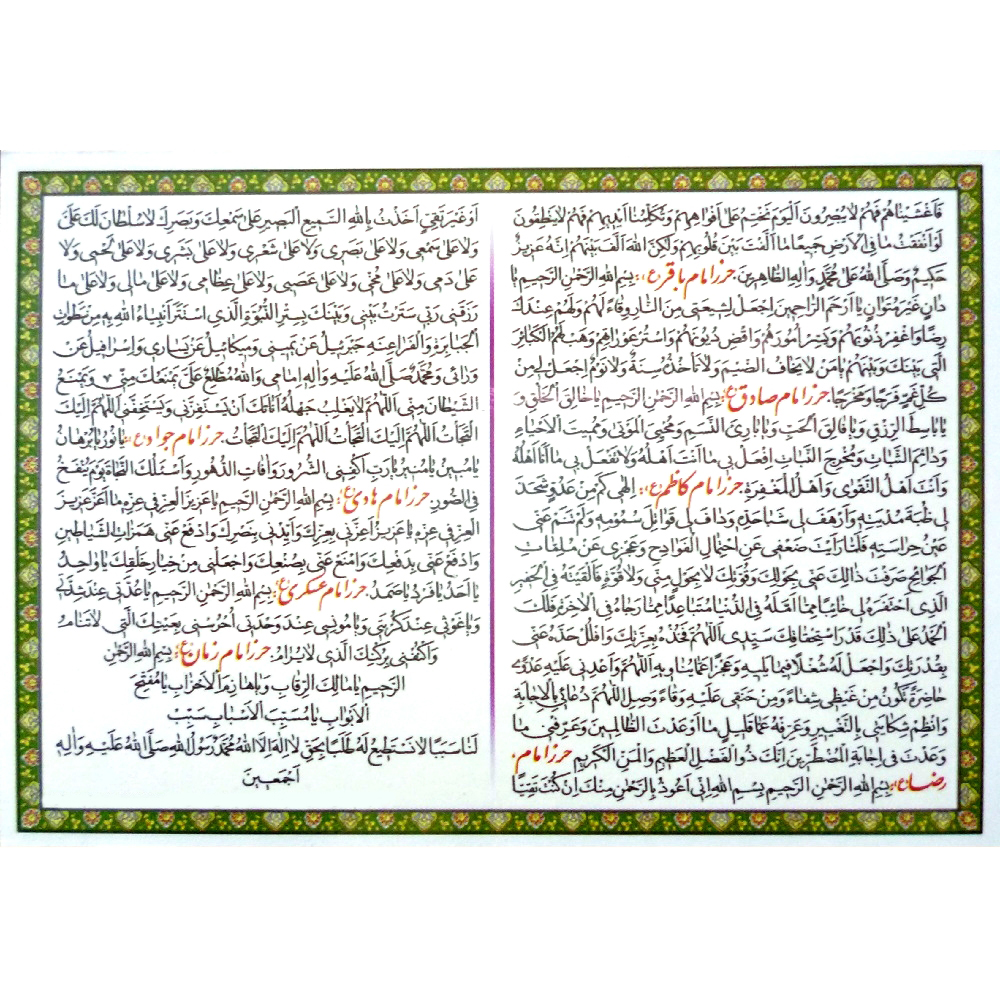 فَاَغْشَيْنٰاهُمْ فَهُمْ لاٰيُبْصِرُونَ اَلْيَوْمَ نَخْتِمُ عَلىٰ اَفْوٰاهِهِمْ وَتُكَلِّمُنٰا اَيْدِيهِمْ فَهُمْ لاٰيَنْطِقُونَ
لَوْ اَنْفَقْتَ مٰا فِى الْاَرْضِ جَمِيعًا مٰا اَلَّفْتَ بَيْنَ قُلُوبِهِمْ وَلٰكِنَّ اللهَ اَلَّفَ بَيْنَهُمْ اِنَّهُ عَزِيزٌ
حَكِيمٌ وَصَلَّى اللهُ عَلىٰ مُحَمَّدٍ وَاٰلِهِ الطّٰاهِرِينَ. حرز امام باقر(ع): بِسْمِ اللهِ الرَّحْمٰنِ الرَّحِيمِ يٰا
دٰانٍ غَيْرَ مُتَوٰانٍ يٰا اَرْحَمَ الرّٰاحِمِينَ اِجْعَلْ لِشِيعَتِى مِنَ النّٰارِ وِقٰاءً لَهُمْ وَلَهُمْ عِنْدَكَ
رِضًا وَاغْفِرْ ذُنُوبَهُمْ وَيَسِّرْ اُمُورَهُمْ وَاقْضِ دُيُونَهُمْ وَاسْتُرْ عَوْرٰاتِهِمْ وَهَبْ لَهُمُ الْكَبٰائِرَ
الَّتِى بَيْنَكَ وَبَيْنَهُمْ يٰا مَنْ لاٰيَخٰافُ الضَّيْمَ وَلاٰ تَأْخُذُهُ سِنَةٌ وَلاٰ نَوْمٌ اِجْعَلْ لِى مِنْ
كُلِّ غَمٍّ فَرَجًا وَمَخْرَجًا. حرز امام صادق(ع): بِسْمِ اللهِ الرَّحْمٰنِ الرَّحِيمِ يٰا خٰالِقَ الْخَلْقِ وَ
يٰا بٰاسِطَ الرِّزْقِ وَيٰا فٰالِقَ الْحَبِّ وَيٰا بٰارِئَ النَّسَمِ وَمُحْيِىَ الْمَوْتىٰ وَمُمِيتَ الْاَحْيٰاءِ
وَدٰائِمَ الثَّبٰاتِ وَمُخْرِجَ النَّبٰاتِ اِفْعَلْ بِى مٰا اَنْتَ اَهْلُهُ وَلاٰ تَفْعَلْ بِى مٰا اَنَا اَهْلُهُ
وَاَنْتَ اَهْلُ التَّقْوىٰ وَاَهْلُ الْمَغْفِرَةِ. حرز امام كاظم(ع): اِلٰهِى كَمْ مِنْ عَدُوٍّ شَحَذَ
لِى ظُبَةَ مُدْيَتِهِ وَاَرْهَفَ لِى شَبٰا حَدِّهِ وَدٰافَ لِى قَوٰاتِلَ سُمُومِهِ وَلَمْ تَنَمْ عَنِّى
عَيْنُ حِرٰاسَتِهِ فَلَمّٰا رَاَيْتَ ضَعْفِى عَنِ احْتِمٰالِ الْفَوٰادِحِ وَعَجْزِى عَنْ مُلِمّٰاتِ
الْجَوٰائِحِ صَرَفْتَ ذٰلِكَ عَنِّى بِحَوْلِكَ وَقُوَّتِكَ لاٰ بِحَوْلٍ مِنِّى وَلاٰ قُوَّةٍ فَاَلْقَيْتَهُ فِى الْحَفِيرِ
الَّذِى احْتَفَرَهُ لِى خٰائِبًا مِمّٰا اَمَّلَهُ فِى الدُّنْيٰا مُتَبٰاعِدًا مِمّٰا رَجٰاهُ فِى الْاٰخِرَةِ فَلَكَ
الْحَمْدُ عَلىٰ ذٰلِكَ قَدْرَ اسْتِحْقٰاقِكَ سَيِّدِى اَللّٰهُمَّ فَخُذْهُ بِعِزَّتِكَ وَافْلُلْ حَدَّهُ عَنِّى
بِقُدْرَتِكَ وَاجْعَلْ لَهُ شُغْلاً فِيمٰا يَلِيهِ وَعَجْزًا عَمّٰا يُنٰاوِيهِ اَللّٰهُمَّ وَاَعْدِنِى عَلَيْهِ عَدْوىً
حٰاضِرَةً تَكُونُ مِنْ غَيْظِى شِفٰاءً وَمِنْ حَنَقِى عَلَيْهِ وَفٰاءً وَصِلِ اللّٰهُمَّ دُعٰائِى بِالْاِجٰابَةِ
وَانْظِمْ شِكٰايَتِى بِالتَّغْيِيرِ وَعَرِّفْهُ عَمّٰا قَلِيلٍ مٰا اَوْعَدْتَ الظّٰالِمِينَ وَعَرِّفْنِى مٰا
وَعَدْتَ فِى اِجٰابَةِ الْمُضْطَرِّينَ اِنَّكَ ذُو الْفَضْلِ الْعَظِيمِ وَالْمَنِّ الْكَرِيمِ حرز امام
رضا(ع): بِسْمِ اللهِ الرَّحْمٰنِ الرَّحِيمِ بِسْمِ اللهِ اِنِّى اَعُوذُ بِالرَّحْمٰنِ مِنْكَ اِنْ كُنْتَ تَقِيًّا
اَوْ غَيْرَ تَقِىٍّ اَخَذْتُ بِاللهِ السَّمِيعِ الْبَصِيرِ عَلىٰ سَمْعِكَ وَبَصَرِكَ لاٰ سُلْطٰانَ لَكَ عَلَىَّ
وَلاٰ عَلىٰ سَمْعِى وَلاٰ عَلىٰ بَصَرِى وَلاٰ عَلىٰ شَعْرِى وَلاٰ عَلىٰ بَشَرِى وَلاٰ عَلىٰ لَحْمِى وَلاٰ
عَلىٰ دَمِى وَلاٰ عَلىٰ مُخِّى وَلاٰ عَلىٰ عَصَبِى وَلاٰ عَلىٰ عِظٰامِى وَلاٰ عَلىٰ مٰالِى وَلاٰ عَلىٰ مٰا
رَزَقَنِى رَبِّى سَتَرْتُ بَيْنِى وَبَيْنَكَ بِسِتْرِ النُّبُوَّةِ الَّذِى اسْتَتَرَ اَنْبِيٰاءُ اللهِ بِهِ مِنْ سَطَوٰاتِ
الْجَبٰابِرَةِ وَالْفَرٰاعِنَةِ جَبْرَئِيلُ عَنْ يَمِينِى وَمِيكٰائِيلُ عَنْ يَسٰارِى وَاِسْرٰافِيلُ عَنْ
وَرٰائِى وَمُحَمَّدٌ صَلَّى اللهُ عَلَيْهِ وَاٰلِهِ اَمٰامِى وَاللهُ مُطَّلِعٌ عَلَىَّ يَمْنَعُكَ مِنِّى وَيَمْنَعُ
الشَّيْطٰانَ مِنِّى اَللّٰهُمَّ لاٰ يَغْلِبُ جَهْلُهُ اَنٰاتَكَ اَنْ يَسْتَفِزَّنِى وَيَسْتَخِفَّنِى اَللّٰهُمَّ اِلَيْكَ
الْتَجَأْتُ اَللّٰهُمَّ اِلَيْكَ الْتَجَأْتُ اَللّٰهُمَّ اِلَيْكَ الْتَجَأْتُ. حرز امام جواد(ع): يٰا نُورُ يٰا بُرْهٰانُ
يٰا مُبِينُ يٰا مُنِيرُ يٰا رَبِّ اكْفِنِى الشُّرُورَ وَاٰفٰاتِ الدُّهُورِ وَاَسْئَلُكَ النَّجٰاةَ يَوْمَ يُنْفَخُ
فِى الصُّورِ. حرز امام هادى(ع): بِسْمِ اللهِ الرَّحْمٰنِ الرَّحِيمِ يٰا عَزِيزَ الْعِزِّ فِى عِزِّهِ مٰا اَعَزَّ عَزِيزَ
الْعِزِّ فِى عِزِّهِ يٰا عَزِيزُ اَعِزَّنِى بِعِزِّكَ وَاَيِّدْنِى بِنَصْرِكَ وَادْفَعْ عَنِّى هَمَزٰاتِ الشَّيٰاطِينِ
وَادْفَعْ عَنِّى بِدَفْعِكَ وَامْنَعْ عَنِّى بِصُنْعِكَ وَاجْعَلْنِى مِنْ خِيٰارِ خَلْقِكَ يٰا وٰاحِدُ
يٰا اَحَدُ يٰا فَرْدُ يٰا صَمَدُ. حرز امام عسكرى(ع): بِسْمِ اللهِ الرَّحْمٰنِ الرَّحِيمِ يٰا عُدَّتِى عِنْدَ شِدَّتِى
وَيٰا غَوْثِى عِنْدَ كُرْبَتِى وَيٰا مُونِسِى عِنْدَ وَحْدَتِى اُحْرُسْنِى بِعَيْنِكَ الَّتِى لاٰ تَنٰامُ
وَاكْنُفْنِى بِرُكْنِكَ الَّذِى لاٰ يُرٰامُ. حرز امام زمان(ع): بِسْمِ اللهِ الرَّحْمٰنِ
الرَّحِيمِ يٰا مٰالِكَ الرِّقٰابِ وَيٰا هٰازِمَ الْاَحْزٰابِ يٰا مُفَتِّحَ
الْاَبْوٰابِ يٰا مُسَبِّبَ الْاَسْبٰابِ سَبِّبْ
لَنٰا سَبَبًا لاٰ نَسْتَطِيعُ لَهُ طَلَبًا بِحَقِّ لاٰ اِلٰهَ اِلَّا اللهُ مُحَمَّدٌ رَسُولُ اللهِ صَلَّى اللهُ عَلَيْهِ وَاٰلِهِ
اَجْمَعِينَ